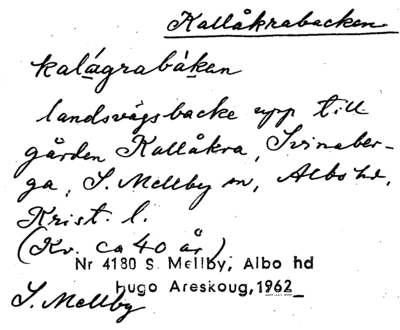 Kallåkrabacken
kalágrabákan
landsvägsbacke upp till
gården Kallåkra, Svinaber-
ga, S. Mellby sn, Albo hd,
Krist. l.
(Kv. ca 40 år)
Nr 4180 S. Mellby, Albo hd
Hugo Areskoug, 1962
S. Mellby